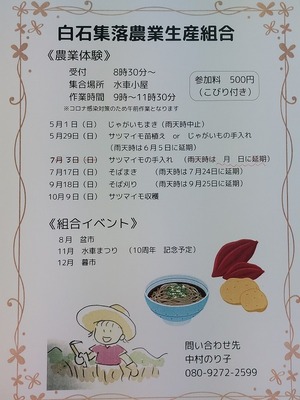 白石集落農業生産組合
《農業体験》
受付 8時30分～
集合場所 水車小屋
作業時間 9時～11時30分
※コロナ感染対策のため午前作業となります
参加料 500円
（こびり付き）
５月１日（日） じゃがいもまき（雨天時中止）
５月29日（日） サツマイモ苗植え or じゃがいもの手入れ
（雨天時は６月５日に延期）
７月３日（日） サツマイモの手入れ （雨天時は 月 日に延期）
７月17日（日） そばまき （雨天時は７月24日に延期）
９月18日（日） そば刈り （雨天時は９月25日に延期）
10月９日（日） サツマイモ収穫
《組合イベント》
８月 盆市
11月 水車まつり （10周年 記念予定）
12月 暮市
問い合わせ先
中村のり子
080-9272-2599